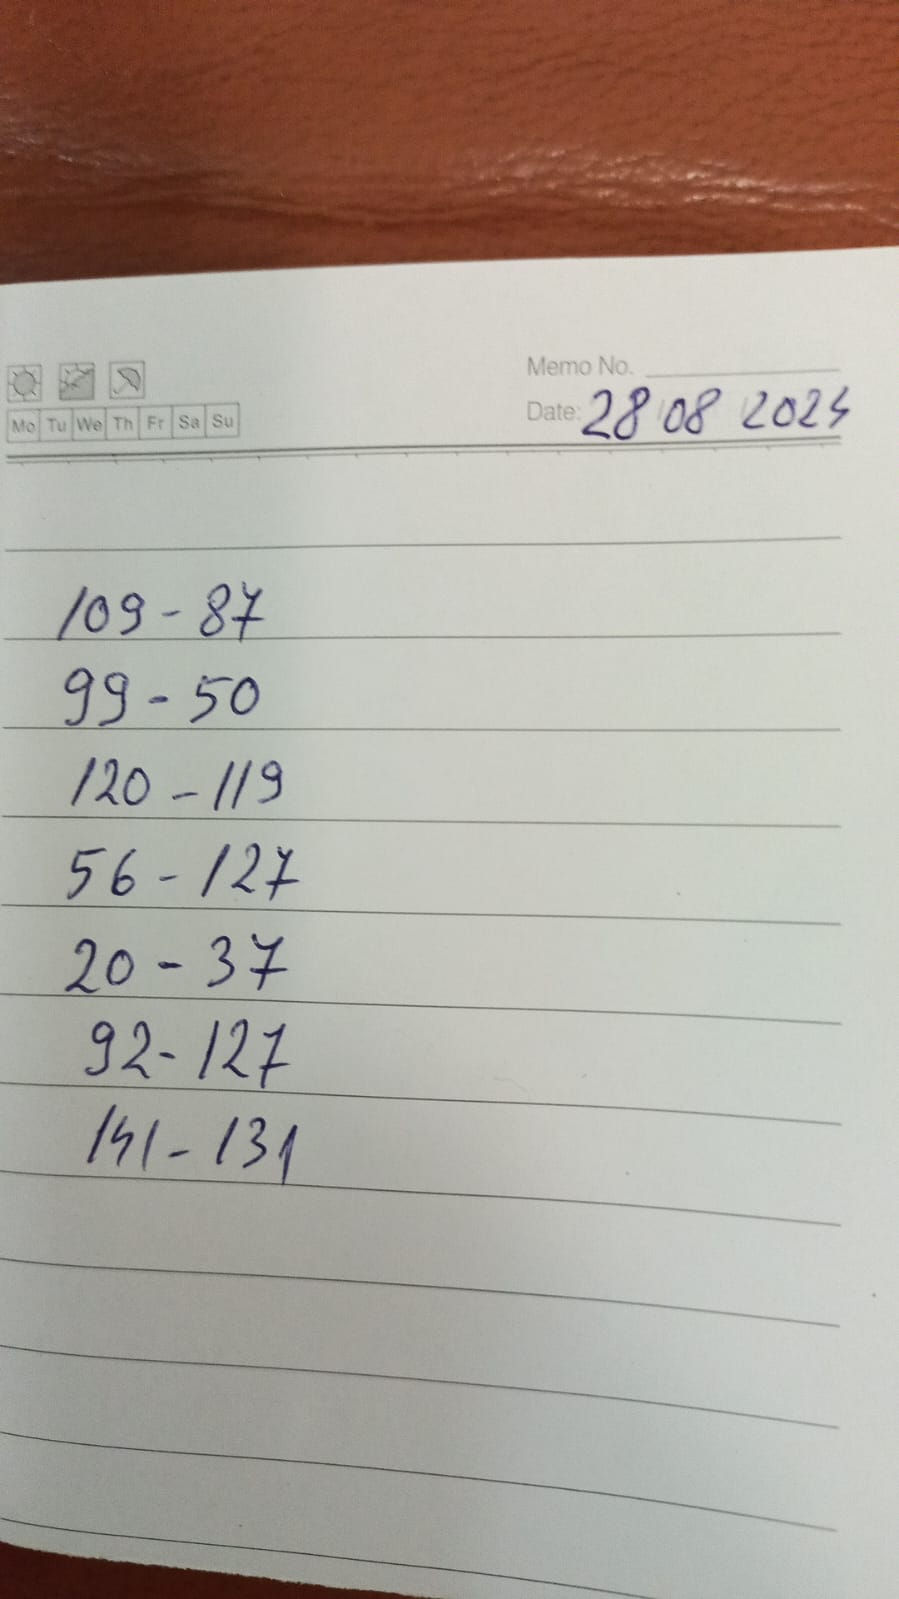 Memo No.
Mo Tu We Th Fr Sa Su
Date: 28 08 2024
109 - 87
99 - 50
120 - 119
56 - 127
20 - 37
92 - 127
141 - 131